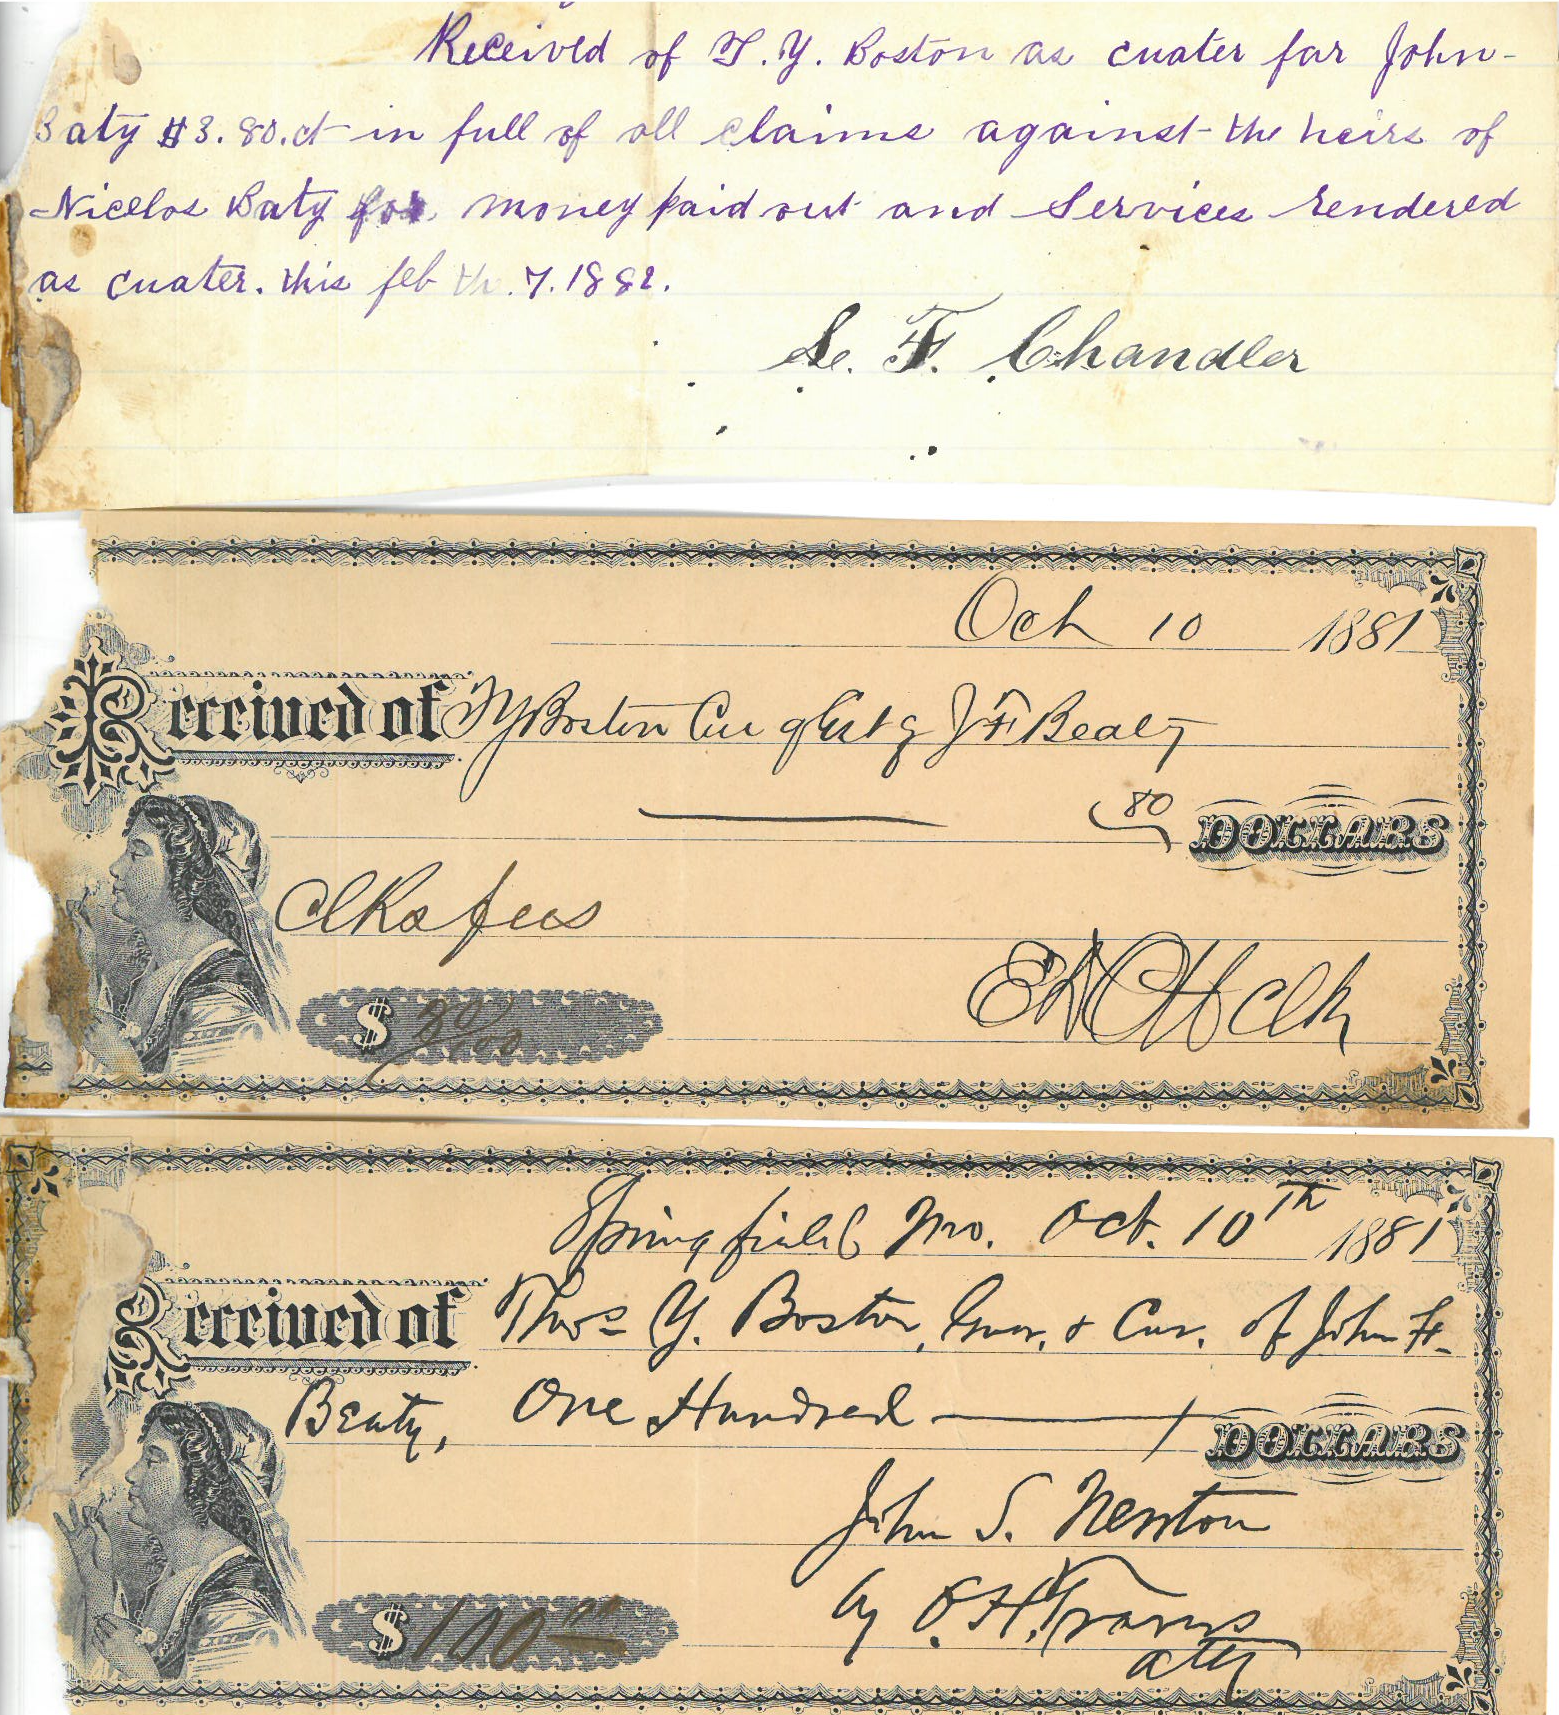 Received of T. Y. Boston as cuater for John-
Baty $3.80.ct in full of all claims against the heirs of
Nicelos Baty for money paid out and Services rendered
as cuater. this feb th. 7. 1882.
S. F. Chandler
Oct 10 1881
Received of T Y Boston Cur of Est of J F Beaty
80 DOLLARS
Clks fees
$ 80/100
Clk
Springfield Mo. Oct. 10th 1881
Received of Thos Y. Boston, Guar. & Cur. of John F.
Beaty, One Hundred DOLLARS
John S. Newton
by O. H. Travers
atty
$100.00